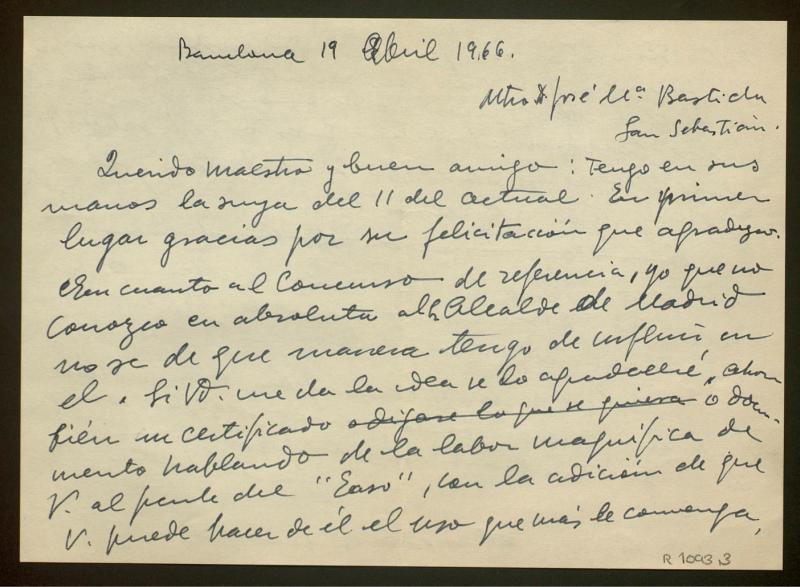 Barcelona 19 Abril 1966.
Mtro D. José Mª Bastida
San Sebastián.
Querido maestro y buen amigo: Tengo en sus
manos la suya del 11 del actual. En primer
lugar gracias por su felicitación que agradezco.
En cuanto al Concurso de referencia, yo que no
conozco en absoluto al Alcalde de Madrid
no se de que manera tengo de influir en
el. Si Vd. me da la idea se lo agradeceré,
bién un certificado o digase lo que se quiera o docu-
mento hablando de la labor magnífica de
V. al frente del "Easo", con la adición de que
V. puede hacer de él el uso que más le convenga,
R 1093.3